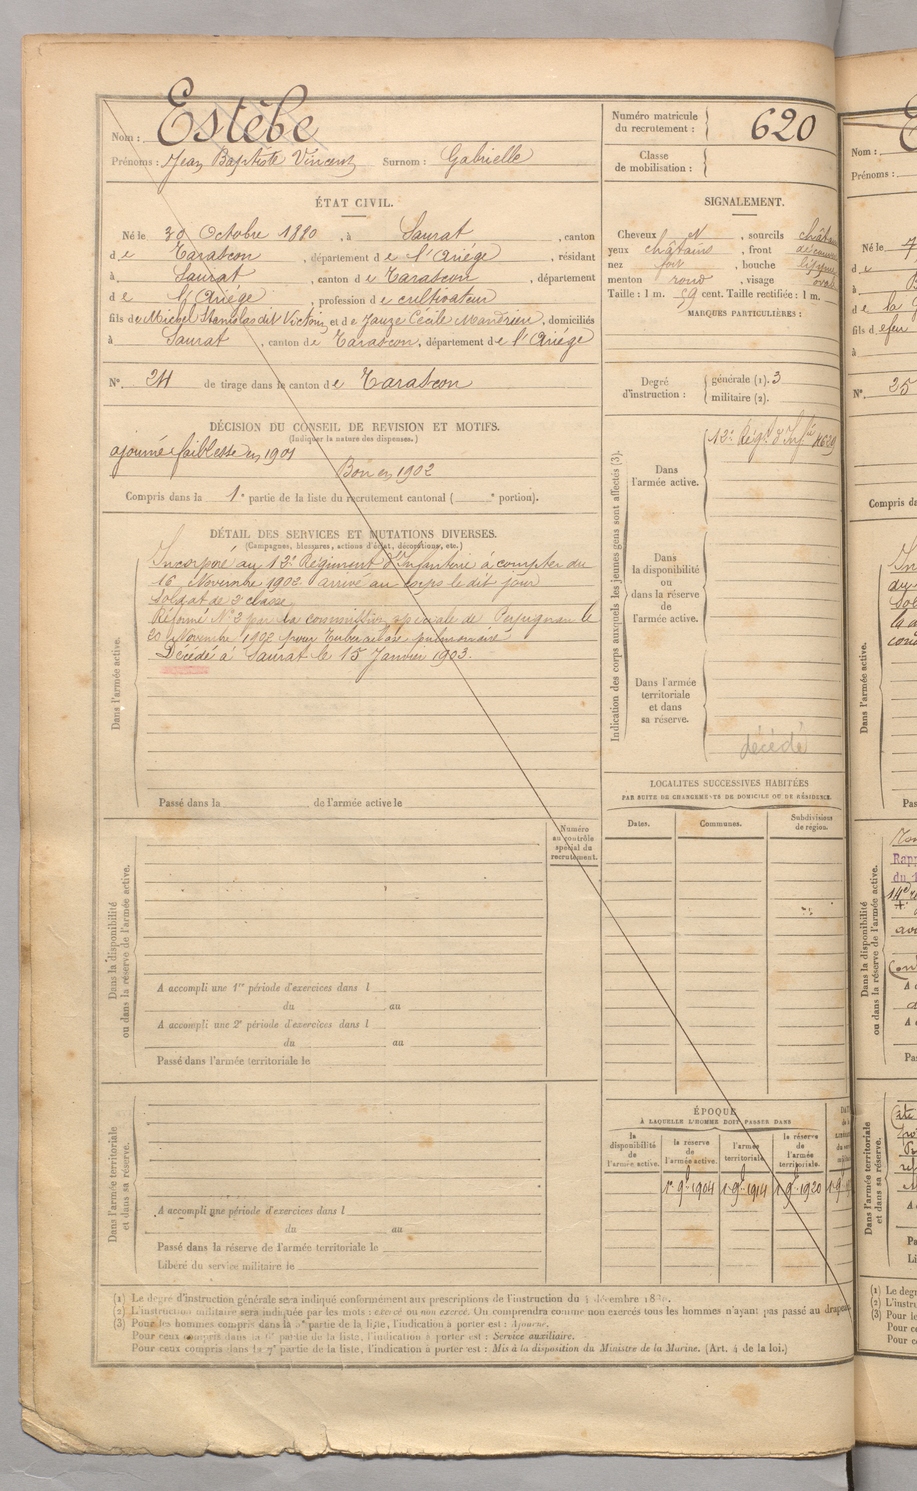 Nom : Estèbe
Prénoms : Jean Baptiste Vincent Surnom : Gabrielle
Numéro matricule
du recrutement : 620
Classe
de mobilisation :
ÉTAT CIVIL.
Né le 30 Octobre 1880, à Saurat, canton
de Tarascon, département de l'Ariège, résidant
à Saurat, canton de Tarascon, département
de l'Ariège, profession de cultivateur
fils de Michel Stanislas dit Victor et de Jauze Cécile Mandrien, domiciliés
à Saurat, canton de Tarascon, département de l'Ariège
N° 24 de tirage dans le canton de Tarascon
SIGNALEMENT.
Cheveux N, sourcils châtains
yeux châtains, front découvert
nez fort, bouche
menton rond, visage ovale
Taille : 1 m. 59 cent. Taille rectifiée : 1 m.
MARQUES PARTICULIÈRES :
Degré
d'instruction :
générale (1). 3
militaire (2).
DÉCISION DU CONSEIL DE REVISION ET MOTIFS.
(Indiquer la nature des dispenses.)
ajourné faiblesse en 1901
Bon en 1902
Compris dans la 1e partie de la liste du recrutement cantonal ( e portion).
DÉTAIL DES SERVICES ET MUTATIONS DIVERSES.
(Campagnes, blessures, actions d'éclat, décorations, etc.)
Dans l'armée active.
Incorporé au 12e Régiment d'Infanterie à compter du
16 Novembre 1902 arrivé au corps le dit jour
soldat de 2e classe
Réformé N° 2 par la commission spéciale de Perpignan le
20 Novembre 1902 pour tuberculose pulmonaire
Décédé à Saurat le 15 Janvier 1903.
Passé dans la de l'armée active le
Indication des corps auxquels les jeunes gens sont affectés (3).
Dans
l'armée active.
12e Régt d'Infie 4629
Dans
la disponibilité
ou dans la réserve
de
l'armée active.
Dans l'armée
territoriale
et dans
sa réserve.
décédé
LOCALITES SUCCESSIVES HABITÉES
PAR SUITE DE CHANGEMENTS DE DOMICILE OU DE RÉSIDENCE.
Dates. Communes. Subdivisions
de région.
Dans la disponibilité
ou dans la réserve de l'armée active.
Numéro
au contrôle
spécial du
recrutement.
A accompli une 1re période d'exercices dans l
du au
A accompli une 2e période d'exercices dans l
du au
Passé dans l'armée territoriale le
Dans l'armée territoriale
et dans sa réserve.
A accompli une période d'exercices dans l
du au
Passé dans la réserve de l'armée territoriale le
Libéré du service militaire le
ÉPOQUE
À LAQUELLE L'HOMME DOIT PASSER DANS
la
disponibilité
de
l'armée active.
la réserve
de
l'armée active.
l'armée
territoriale.
la réserve
de
l'armée
territoriale.
1er 9bre 1904 1er 9bre 1914 1er 9bre 1920
(1) Le degré d'instruction générale sera indiqué conformément aux prescriptions de l'instruction du 4 décembre
(2) L'instruction militaire sera indiquée par les mots : exercé ou non exercé. On comprendra comme non exercés tous les hommes n'ayant pas passé au drapeau.
(3) Pour les hommes compris dans la 5e partie de la liste, l'indication à porter est : Ajourné.
Pour ceux compris dans la 6e partie de la liste, l'indication à porter est : Service auxiliaire.
Pour ceux compris dans la 7e partie de la liste, l'indication à porter est : Mis à la disposition du Ministre de la Marine. (Art. 4 de la loi.)